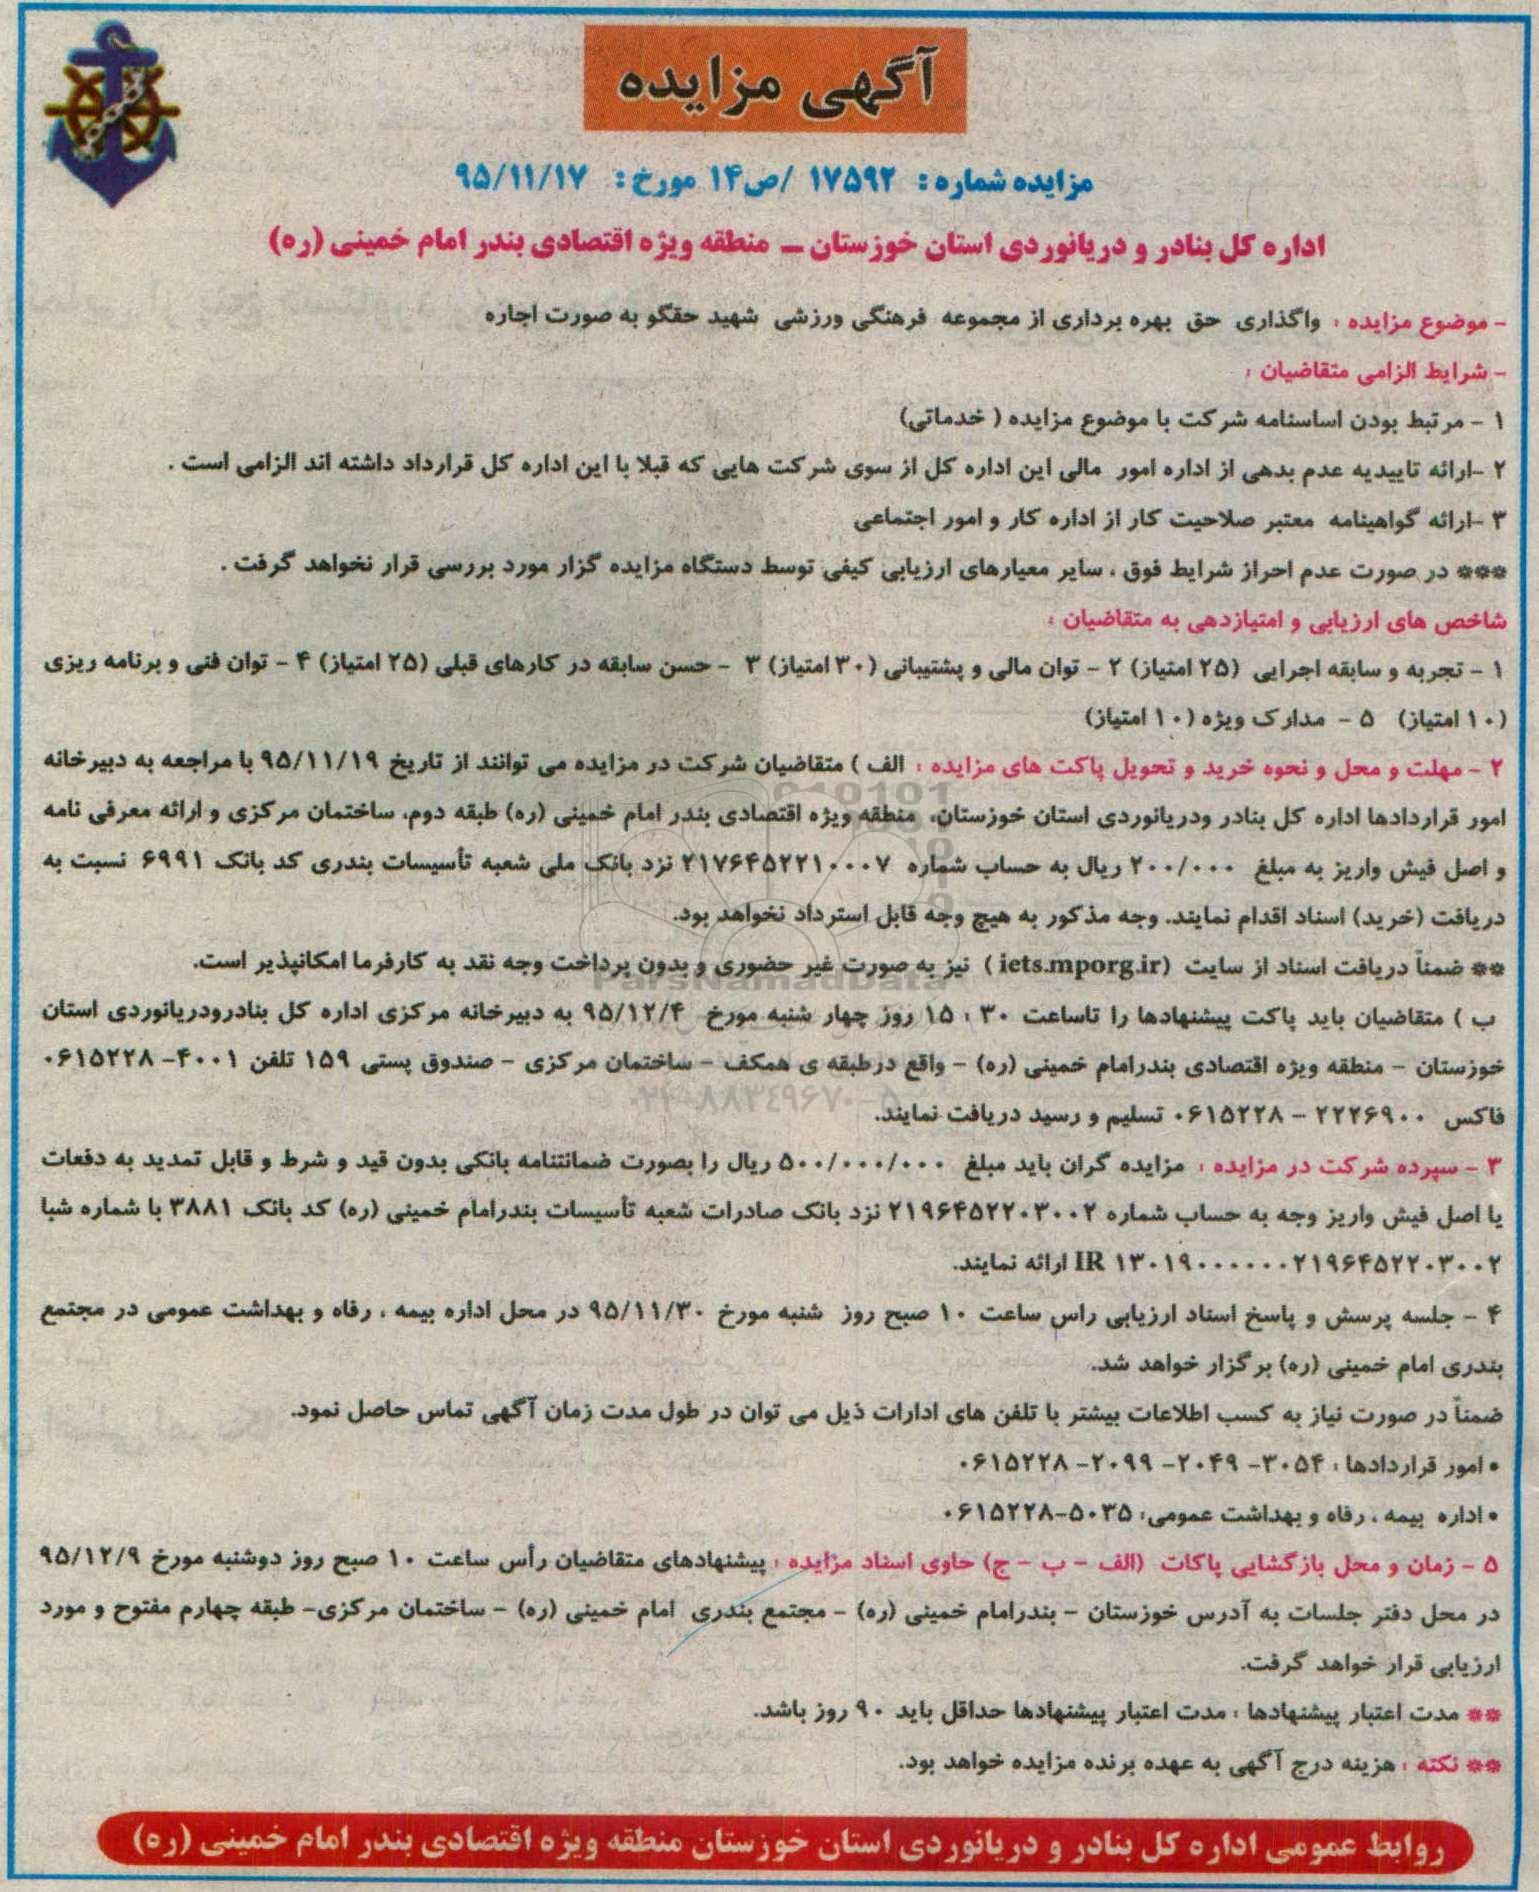 آگهی مزایده
مزایده شماره : ۱۷۵۹۲ /ص۱۴ مورخ : ۹۵/۱۱/۱۷
اداره کل بنادر و دریانوردی استان خوزستان – منطقه ویژه اقتصادی بندر امام خمینی (ره)
- موضوع مزایده : واگذاری حق بهره برداری از مجموعه فرهنگی ورزشی شهید حقگو به صورت اجاره
- شرایط الزامی متقاضیان :
۱ - مرتبط بودن اساسنامه شرکت با موضوع مزایده ( خدماتی)
۲ -ارائه تاییدیه عدم بدهی از اداره امور مالی این اداره کل از سوی شرکت هایی که قبلا با این اداره کل قرارداد داشته اند الزامی است .
۳ -ارائه گواهینامه معتبر صلاحیت کار از اداره کار و امور اجتماعی
*** در صورت عدم احراز شرایط فوق ، سایر معیارهای ارزیابی کیفی توسط دستگاه مزایده گزار مورد بررسی قرار نخواهد گرفت .
شاخص های ارزیابی و امتیازدهی به متقاضیان :
۱ - تجربه و سابقه اجرایی (۲۵ امتیاز) ۲ - توان مالی و پشتیبانی (۳۰ امتیاز) ۳ - حسن سابقه در کارهای قبلی (۲۵ امتیاز) ۴ - توان فنی و برنامه ریزی
(۱۰ امتیاز) ۵ - مدارک ویژه (۱۰ امتیاز)
۲ - مهلت و محل و نحوه خرید و تحویل پاکت های مزایده : الف ) متقاضیان شرکت در مزایده می توانند از تاریخ ۹۵/۱۱/۱۹ با مراجعه به دبیرخانه
امور قراردادها اداره کل بنادر ودریانوردی استان خوزستان، منطقه ویژه اقتصادی بندر امام خمینی (ره) طبقه دوم، ساختمان مرکزی و ارائه معرفی نامه
و اصل فیش واریز به مبلغ ۲۰۰/۰۰۰ ریال به حساب شماره ۲۱۷۶۴۵۲۲۱۰۰۰۷ نزد بانک ملی شعبه تأسیسات بندری کد بانک ۶۹۹۱ نسبت به
دریافت (خرید) اسناد اقدام نمایند. وجه مذکور به هیچ وجه قابل استرداد نخواهد بود.
** ضمناً دریافت اسناد از سایت (iets.mporg.ir ) نیز به صورت غیر حضوری و بدون پرداخت وجه نقد به کارفرما امکانپذیر است.
ParsNamadData
ب ) متقاضیان باید پاکت پیشنهادها را تاساعت ۳۰ : ۱۵ روز چهار شنبه مورخ ۹۵/۱۲/۴ به دبیرخانه مرکزی اداره کل بنادرودریانوردی استان
خوزستان - منطقه ویژه اقتصادی بندرامام خمینی (ره) - واقع درطبقه ی همکف - ساختمان مرکزی - صندوق پستی ۱۵۹ تلفن ۴۰۰۱- ۰۶۱۵۲۲۸
۰۲۱-۸۸۳۴۹۶۷۰-۵
فاکس ۲۲۲۶۹۰۰ - ۰۶۱۵۲۲۸ تسلیم و رسید دریافت نمایند.
۳ - سپرده شرکت در مزایده : مزایده گران باید مبلغ ۵۰۰/۰۰۰/۰۰۰ ریال را بصورت ضمانتنامه بانکی بدون قید و شرط و قابل تمدید به دفعات
یا اصل فیش واریز وجه به حساب شماره ۲۱۹۶۴۵۲۲۰۳۰۰۲ نزد بانک صادرات شعبه تأسیسات بندرامام خمینی (ره) کد بانک ۳۸۸۱ با شماره شبا
IR ۱۳۰۱۹۰۰۰۰۰۰۰۲۱۹۶۴۵۲۲۰۳۰۰۲ ارائه نمایند.
۴ - جلسه پرسش و پاسخ اسناد ارزیابی راس ساعت ۱۰ صبح روز شنبه مورخ ۹۵/۱۱/۳۰ در محل اداره بیمه ، رفاه و بهداشت عمومی در مجتمع
بندری امام خمینی (ره) برگزار خواهد شد.
ضمناً در صورت نیاز به کسب اطلاعات بیشتر با تلفن های ادارات ذیل می توان در طول مدت زمان آگهی تماس حاصل نمود.
• امور قراردادها : ۳۰۵۴- ۲۰۴۹- ۲۰۹۹- ۰۶۱۵۲۲۸
• اداره بیمه ، رفاه و بهداشت عمومی: ۵۰۳۵-۰۶۱۵۲۲۸
۵ - زمان و محل بازگشایی پاکات (الف - ب - ج) حاوی اسناد مزایده : پیشنهادهای متقاضیان رأس ساعت ۱۰ صبح روز دوشنبه مورخ ۹۵/۱۲/۹
در محل دفتر جلسات به آدرس خوزستان - بندرامام خمینی (ره) - مجتمع بندری امام خمینی (ره) - ساختمان مرکزی- طبقه چهارم مفتوح و مورد
ارزیابی قرار خواهد گرفت.
** مدت اعتبار پیشنهادها : مدت اعتبار پیشنهادها حداقل باید ۹۰ روز باشد.
** نکته : هزینه درج آگهی به عهده برنده مزایده خواهد بود.
روابط عمومی اداره کل بنادر و دریانوردی استان خوزستان منطقه ویژه اقتصادی بندر امام خمینی (ره)